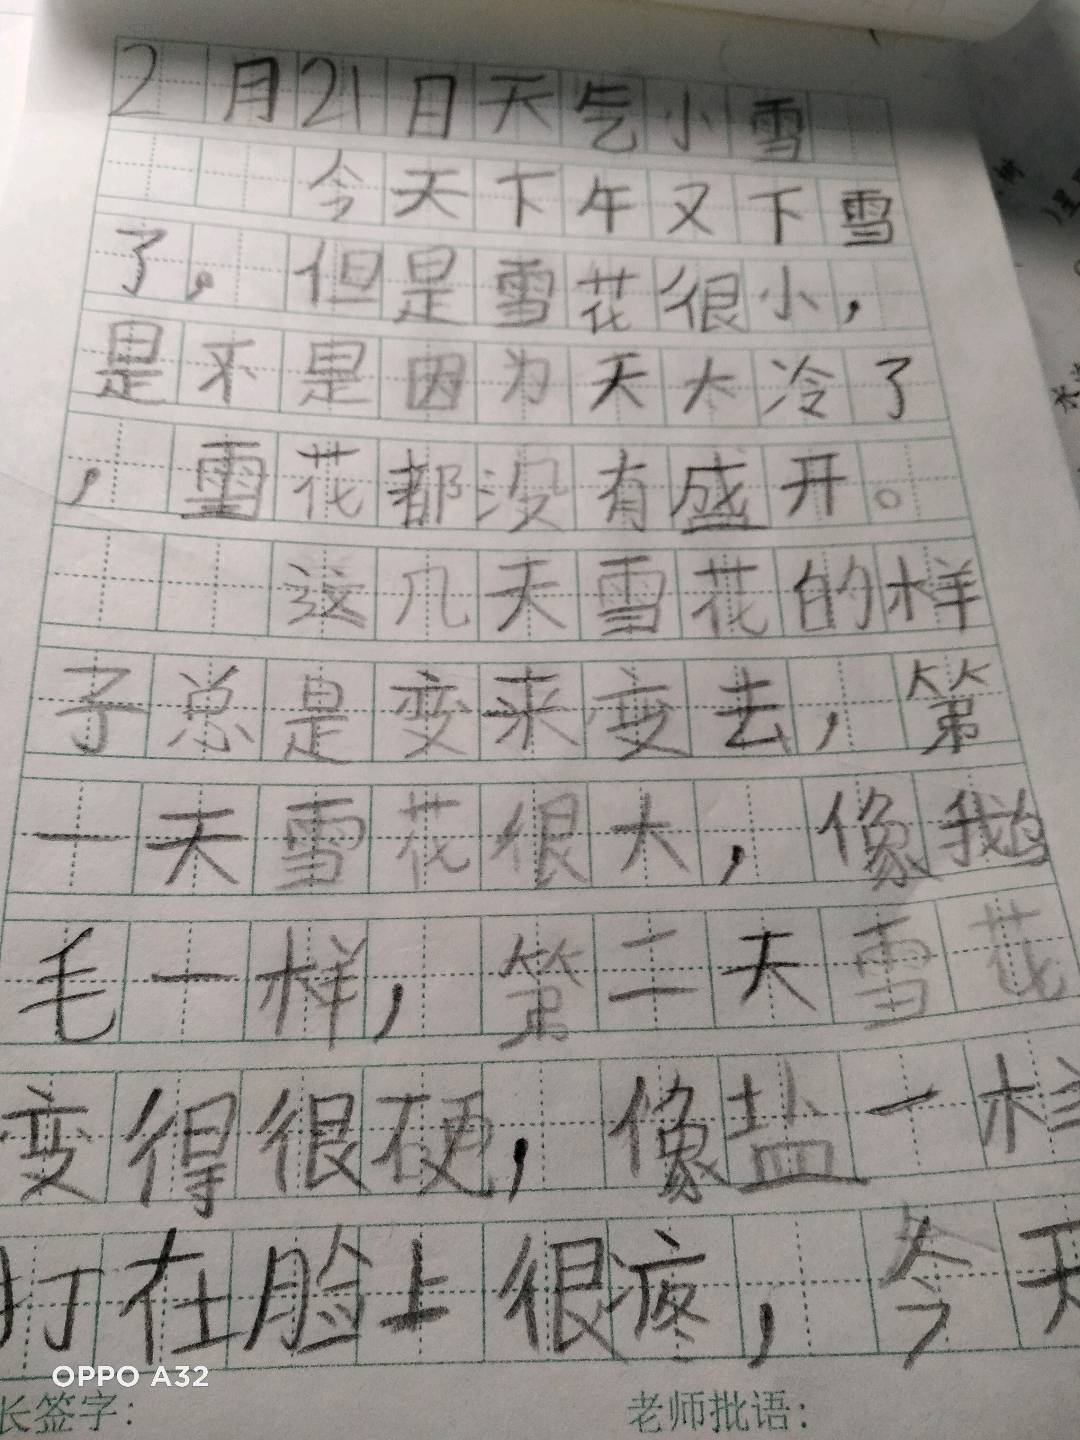 2月21日天气小雪
今天下午又下雪
了，但是雪花很小，
是不是因为天太冷了
，雪花都没有盛开。
这几天雪花的样
子总是变来变去，第
一天雪花很大，像鹅
毛一样，第二天雪花
变得很硬，像盐一样
打在脸上很疼，今天
长签字： 老师批语：
OPPO A32